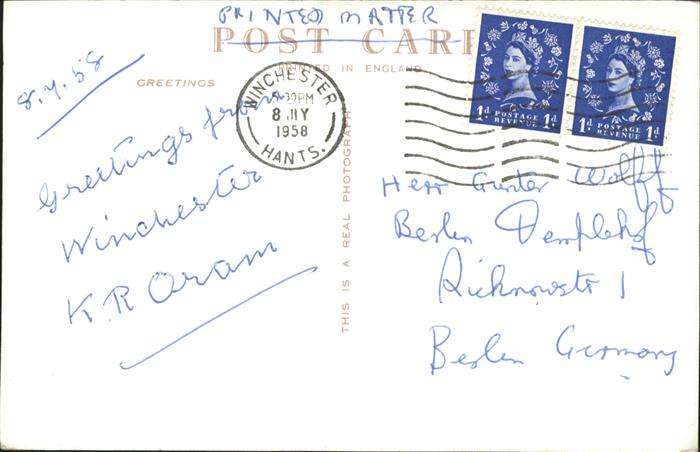 PRINTED MATTER
POST CARD
PRINTED IN ENGLAND
GREETINGS
8.7.58
Greetings from
Winchester
K. R Oram
THIS IS A REAL PHOTOGRAPH
WINCHESTER
PM
8 JLY
1958
HANTS.
1d. POSTAGE REVENUE 1d.
1d. POSTAGE REVENUE 1d.
Herr Gunter Wolff
Berlin Templehof
1
Berlin Germany